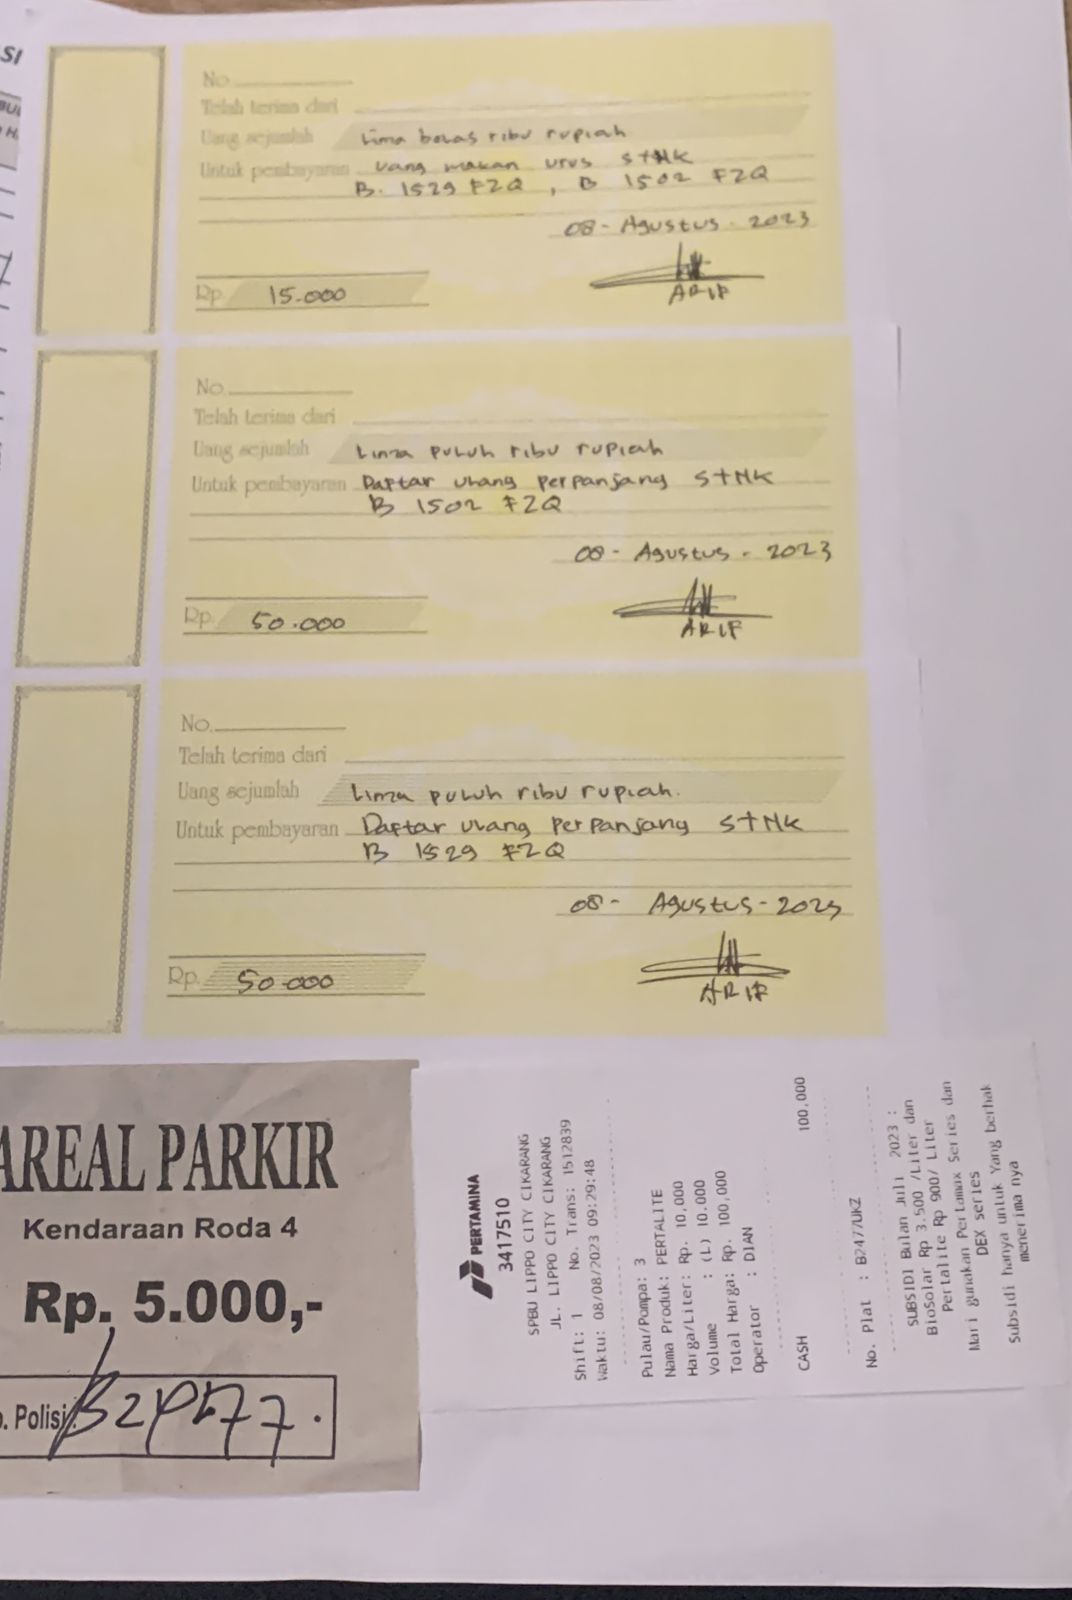 SI
BUL
No.
Telah terima dari
Uang sejumlah Lima belas ribu rupiah
Untuk pembayaran Uang makan urus STNK
B. 1529 FZQ , B 1502 FZQ
08 - Agustus - 2023
Rp. 15.000
ARIF
No.
Telah terima dari
Uang sejumlah Lima puluh ribu rupiah
Untuk pembayaran Daftar ulang perpanjang STNK
B 1502 FZQ
08 - Agustus - 2023
Rp. 50.000
ARIF
No.
Telah terima dari
Uang sejumlah Lima puluh ribu rupiah.
Untuk pembayaran Daftar ulang perpanjang STNK
B 1529 FZQ
08 - Agustus - 2023
Rp. 50.000
ARIF
AREAL PARKIR
Kendaraan Roda 4
Rp. 5.000,-
. Polisi B2477.
PERTAMINA
3417510
SPBU LIPPO CITY CIKARANG
JL. LIPPO CITY CIKARANG
Shift: 1 No. Trans: 1512839
Waktu: 08/08/2023 09:29:48
Pulau/Pompa: 3
Nama Produk: PERTALITE
Harga/Liter: Rp. 10,000
Volume : (L) 10.000
Total Harga: Rp. 100,000
Operator : DIAN
CASH 100,000
No. Plat : B2477UKZ
SUBSIDI Bulan Juli 2023 :
BioSolar Rp 3.500 /Liter dan
Pertalite Rp 900/ Liter
Mari gunakan Pertamax Series dan
DEX series
Subsidi hanya untuk Yang berhak
menerima nya